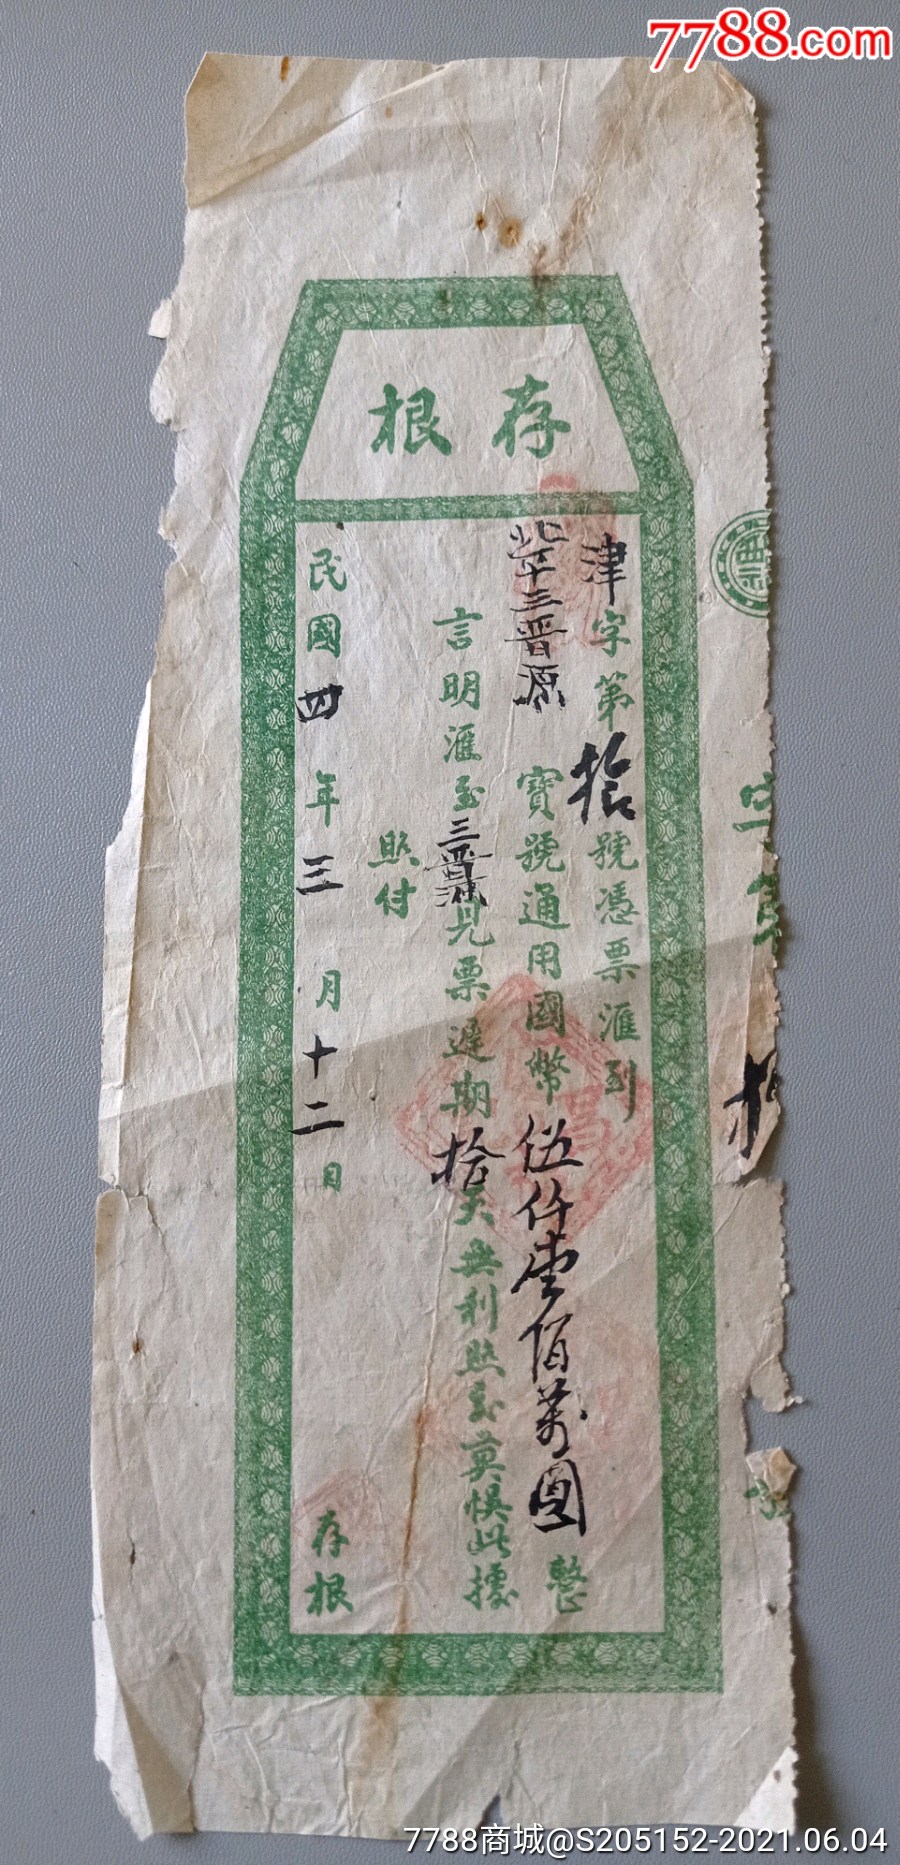 7788.com
存根
津字第拾號憑票滙到
北平三晋源寶號通用國幣伍仟壹佰萬圓整
言明滙至三晋源見票遲期拾天無利照交莫悞此據
照付
民國四年三月十二日
存根
7788商城@S205152-2021.06.04